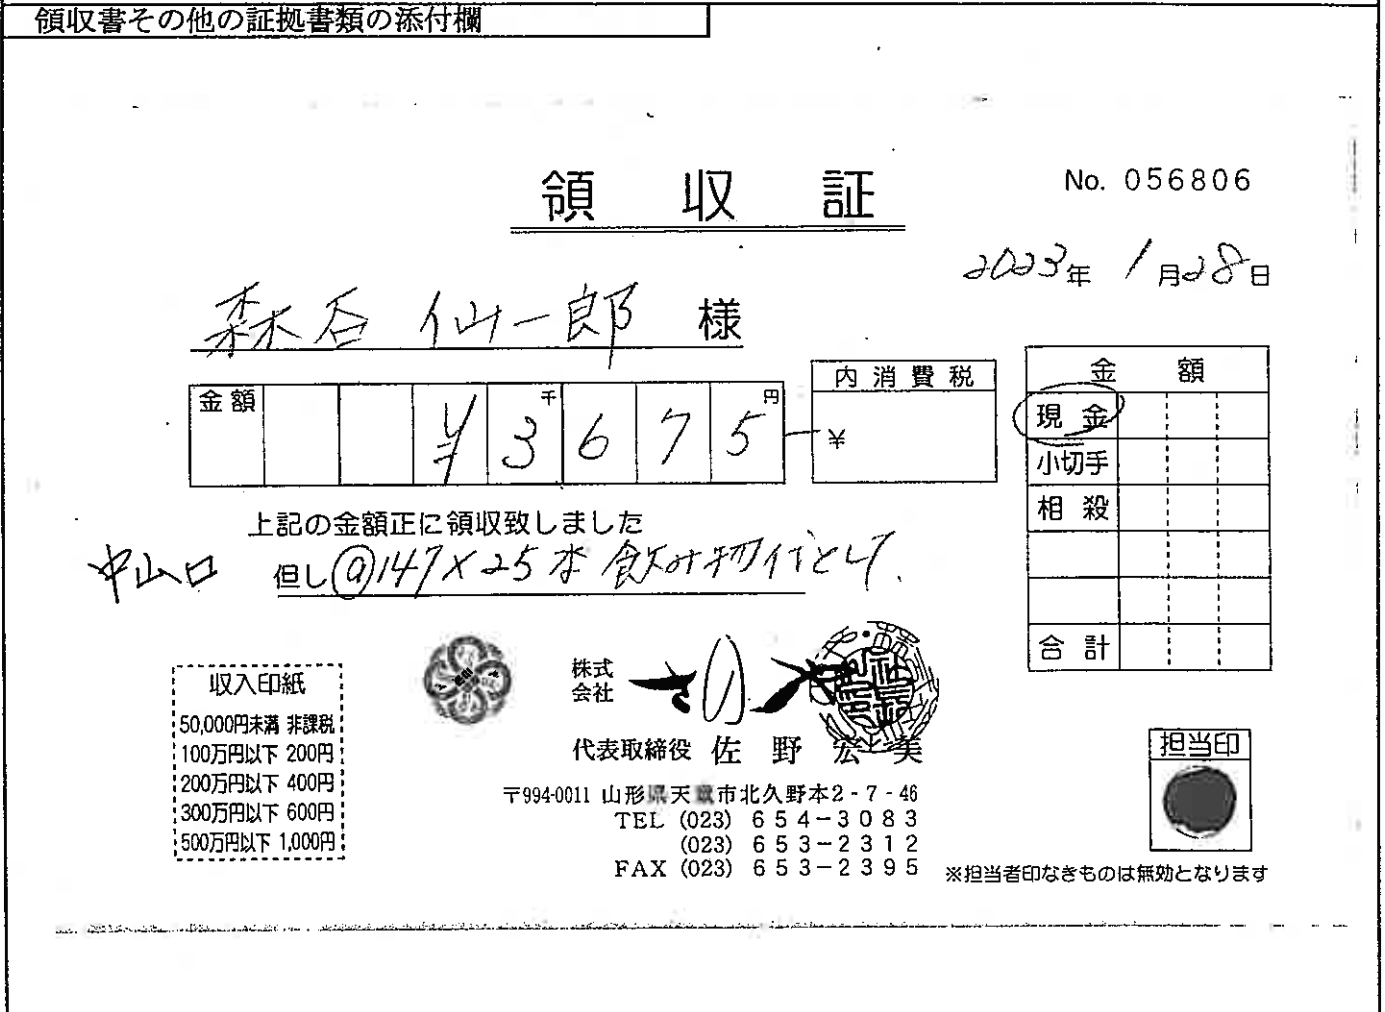 領収書その他の証拠書類の添付欄
領 収 証
No. 056806
2023年 1月28日
森谷 仙一郎 様
金額 ¥3675
千
円
内消費税
¥
金 額
現 金
小切手
相 殺
合 計
上記の金額正に領収致しました
中山口
但し@147×25本 飲み物代として.
収入印紙
50,000円未満 非課税
100万円以下 200円
200万円以下 400円
300万円以下 600円
500万円以下 1,000円
株式会社 さのや
代表取締役 佐 野 宏 美
〒994-0011 山形県天童市北久野本2-7-46
TEL (023) 654-3083
(023) 653-2312
FAX (023) 653-2395
担当印
※担当者印なきものは無効となります